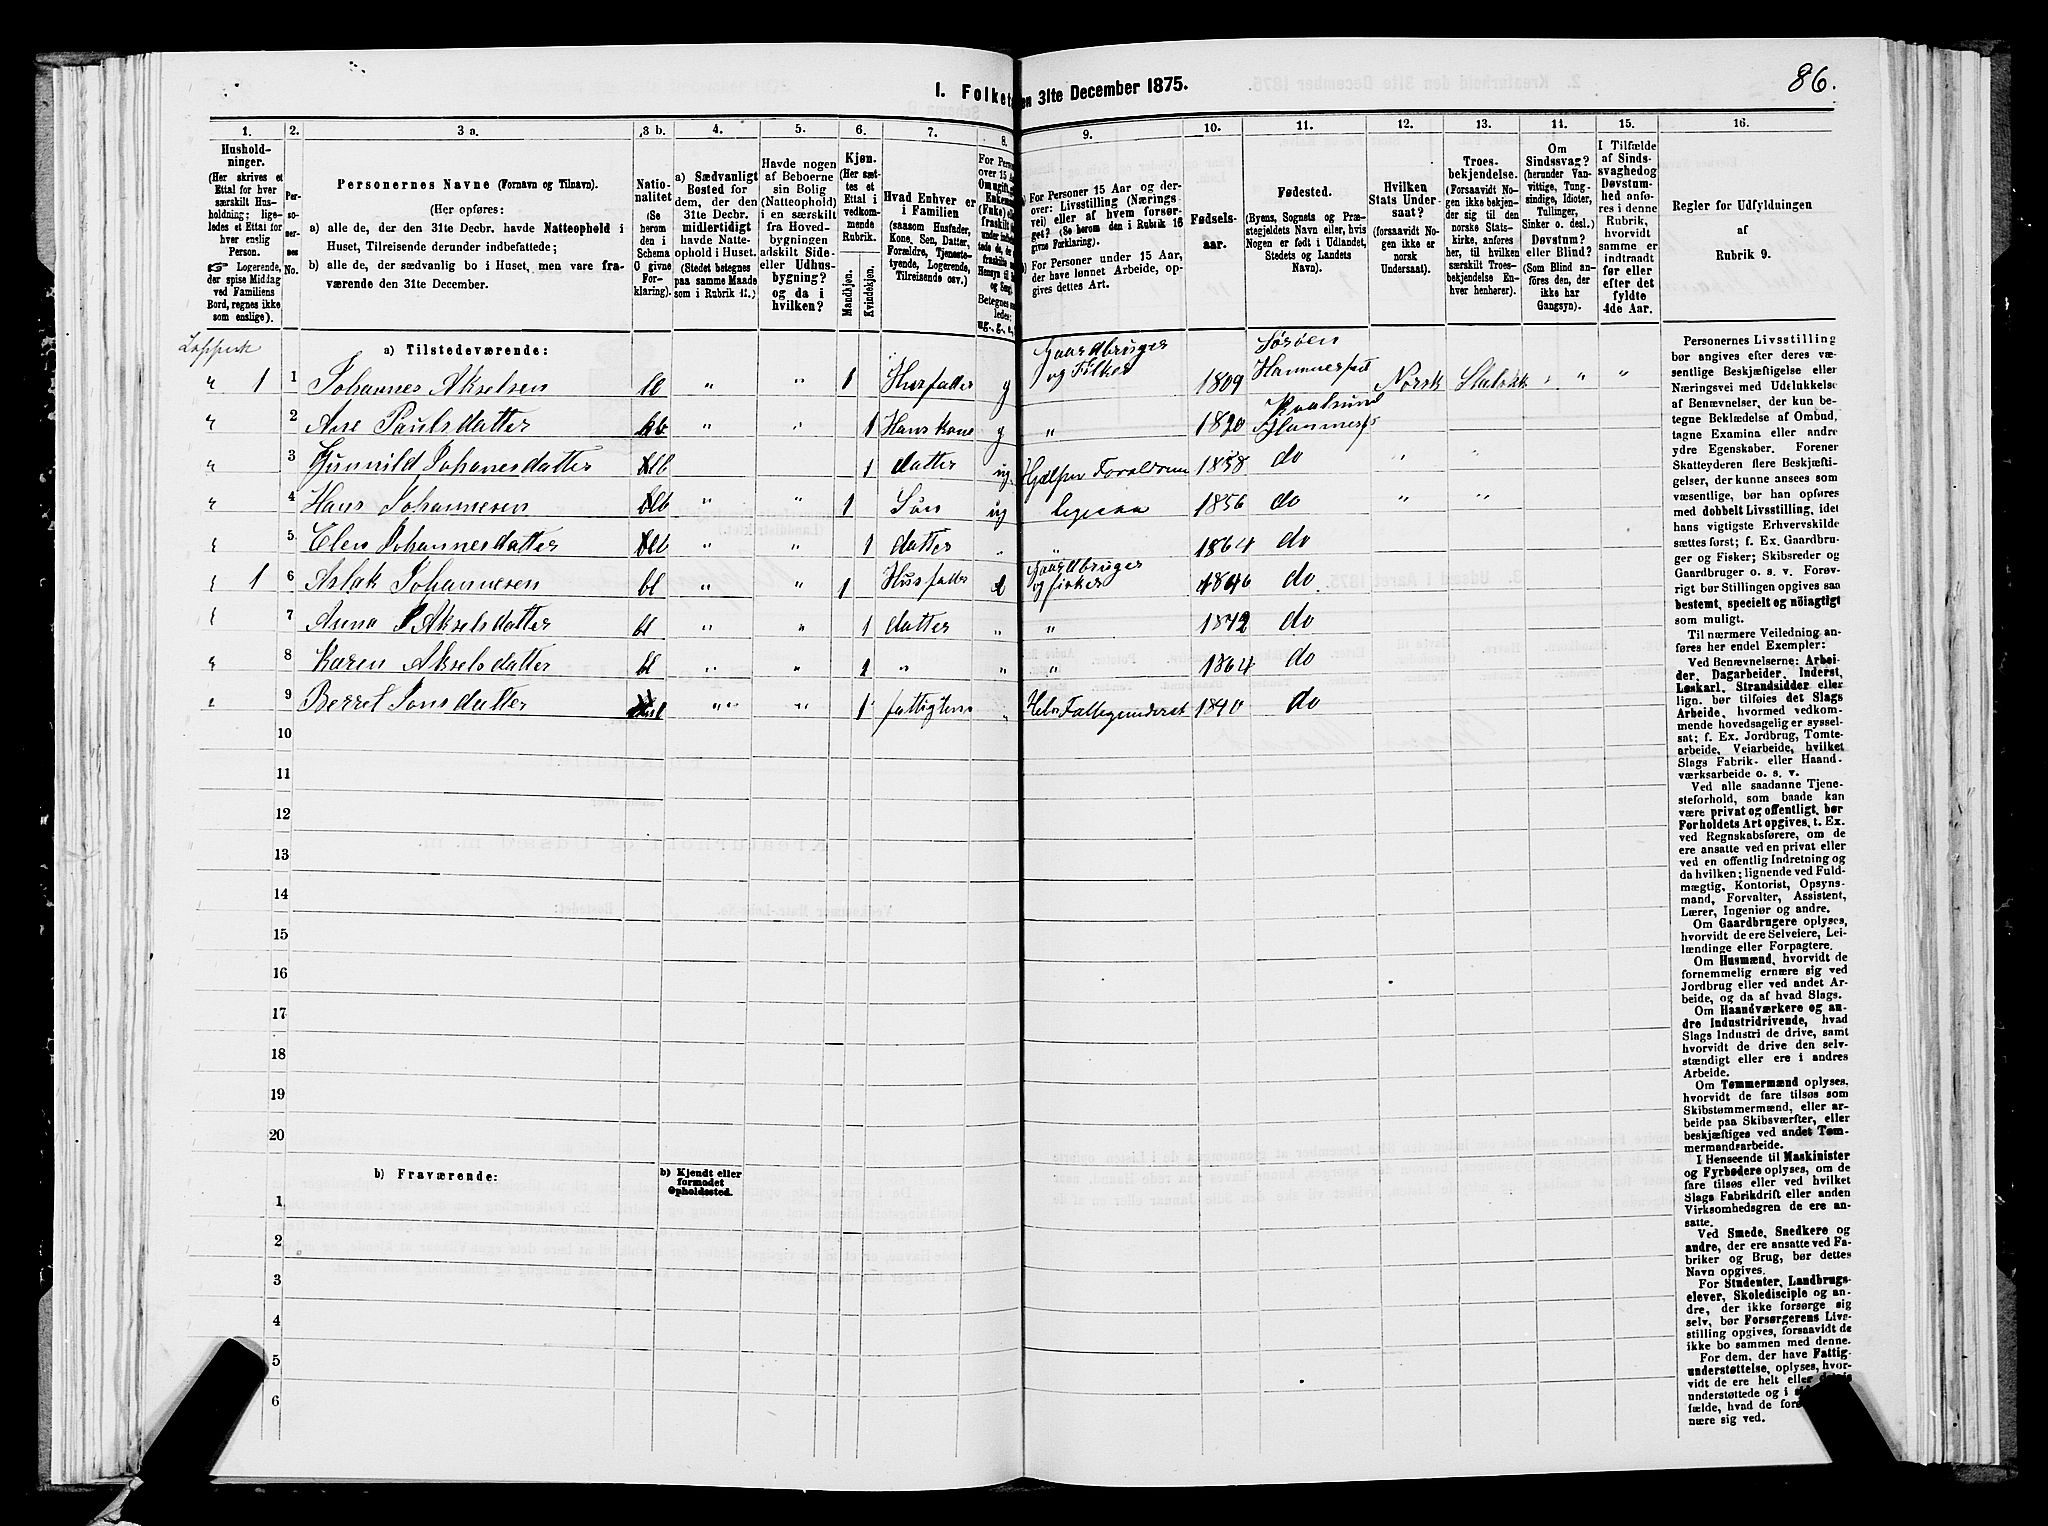 86.
I. Folket
en 31te December 1875.
1. 2. 3 a. 3 b. 4. 5. 6. 7. 8. 9. 10. 11. 12. 13. 14. 15. 16.
Hushold-
ninger.
(Her skrives et
Ettal for hver
særskilt Hus-
holdning; lige-
ledes et Ettal for
hver enslig
Person.
☞ Logerende,
der spise Middag
ved Familiens
Bord, regnes ikke
som enslige).
Per-
so-
ner-
nes
No.
Personernes Navne (Fornavn og Tilnavn).
(Her opføres:
a) alle de, der den 31te Decbr. havde Natteophold i
Huset, Tilreisende derunder indbefattede;
b) alle de, der sædvanlig bo i Huset, men vare fra-
værende den 31te December.
Natio-
nalitet
(Se
herom
den i
Schema
O givne
For-
klaring).
a) Sædvanligt
Bosted for
dem, der den
31te Decbr.
midlertidigt
havde Natte-
ophold i Huset.
(Stedet betegnes
paa samme Maade
som i Rubrik 11.)
Havde nogen
af Beboerne
sin Bolig
(Natteophold)
i en særskilt
fra Hoved-
bygningen
adskilt Side-
eller Udhus-
bygning?
og da i
hvilken?
Kjøn.
(Her sæt-
tes et
Ettal i
vedkom-
mende
Rubrik.
Mandkjøn.
Kvindekjøn.
Hvad Enhver er
i Familien
(saasom Husfader,
Kone, Søn, Datter,
Forældre, Tjeneste-
tyende, Logerende,
Tilreisende osv.)
For Perso
over 15 Aa
Om ugift, g
Enkema
(Enke) ell
fraskilt
Betegnes sa
ledes:
ug., g., e.,
For Personer 15 Aar og der-
over: Livsstilling (Nærings
vei) eller af hvem forsør-
get? (Se herom den i Rubrik 16
givne Forklaring).
For Personer under 15 Aar,
der have lønnet Arbeide, op-
gives dettes Art.
Fødsels-
aar.
Fødested.
(Byens, Sognets og Præ-
stegjeldets Navn eller, hvis
Nogen er født i Udlandet,
Stedets og Landets
Navn).
Hvilken
Stats Under-
saat?
(forsaavidt No-
gen ikke er
norsk
Undersaat).
Troes-
bekjendelse.
(Forsaavidt No-
gen ikke bekjen-
der sig til den
norske Stats-
kirke, anføres
her, til hvilken
særskilt Troes-
bekjendelse En-
hver henhører).
Om
Sindssvag?
(herunder Van-
vittige, Tung-
sindige, Idioter,
Tullinger,
Sinker o. desl.)
Døvstum?
eller Blind?
(Som Blind an-
føres den, der
ikke har
Gangsyn).
I Tilfælde
af Sinds-
svaghed og
Døvstum-
hed anfø-
res i denne
Rubrik,
hvorvidt
samme er
indtraadt
før eller
efter det
fyldte
4de Aar.
Regler for Udfyldningen
af
Rubrik 9.
a) Tilstedeværende:
" 1 1 Johannes Akselsen " " 1 Husfader g Gaardbruger og Fisker 1809 Sørøen Hammerfest Norsk Statsk " " "
" 2 Ane Paulsdatter " " 1 Hans kone g " 1820 Kvalsund Hammerfs
" 3 Gunnild Johanesdatter 1 datter ug Hjælper Foraldrene 1858 do " "
" 4 Hans Johannesen " " 1 Søn ug ligesaa 1856 do " "
" 5 Elen Johannesdatter " " 1 datter " " 1864 do
" 1 6 Aslak Johannesen bl " " 1 Husfader Gaardbruger og fisker 1846 do
" 7 Anna Akselsdatter bl " " 1 datter " " 1842 do
" 8 Karen Akselsdatter bl " " 1 " " " 1864 do
" 9 Berret Jonsdatter " " 1 fattiglem " 1840 do
10
11
12
13
14
15
16
17
18
19
20
b) Fraværende:
b) Kjendt eller
formodet
Opholdssted.
1
2
3
4
5
6
Personernes Livsstilling
bør angives efter deres væ-
sentlige Beskjæftigelse eller
Næringsvei med Udelukkelse
af Benævnelser, der kun be-
tegne Beklædelse af Ombud,
tagne Examina eller andre
ydre Egenskaber. Forener
Skatteyderen flere Beskjæfti-
gelser, der kunne ansees som
væsentlige, bør han opføres
med dobbelt Livsstilling, idet
hans vigtigste Erhvervskilde
sættes først; f. Ex. Gaardbru-
ger og Fisker; Skibsreder og
Gaardbruger o. s. v. Forøv-
rigt bør Stillingen opgives saa
bestemt, specielt og nöiagtigt
som muligt.
Til nærmere Veiledning an-
føres her endel Exempler:
Ved Benævnelserne: Arbei-
der, Dagarbeider, Inderst,
Løskarl, Strandsidder eller
lign. bør tilføies det Slags
Arbeide, hvormed vedkom-
mende hovedsagelig er syssel-
sat; f. Ex. Jordbrug, Tomte-
arbeide, Veiarbeide, hvilket
Slags Fabrik- eller Haand-
værksarbeide o. s. v.
Ved alle saadanne Tjene-
steforhold, som baade kan
være privat og offentligt, bør
Forholdets Art opgives, t. Ex.
ved Regnskabsførere, om de
ere ansatte ved en privat eller
ved en offentlig Indretning og
da hvilken; lignende ved Fuld-
mægtig, Kontorist, Opsyns-
mand, Forvalter, Assistent,
Lærer, Ingeniør og andre.
Om Gaardbrugere oplyses,
hvorvidt de ere Selveiere, Lei-
lændinge eller Forpagtere.
Om Husmænd, hvorvidt de
fornemmelig ernære sig ved
Jordbrug eller ved andet Ar-
beide, og da af hvad Slags.
Om Haandværkere og an-
dre Industridrivende, hvad
Slags Industri de drive, samt
hvorvidt de drive den selv-
stændigt eller ere i andres
Arbeide.
Om Tømmermænd oplyses.
hvorvidt de fare tilsøs som
Skibstømmermænd, eller ar-
beide paa Skibsværfter, eller
beskjæftiges ved andet Tøm-
mermandsarbeide.
I Henseende til Maskinister
og Fyrbødere oplyses, om de
fare tilsøs eller ved hvilket
Slags Fabrikdrift eller anden
Virksomhedsgren de ere an-
satte.
Ved Smede, Snedkere og
andre, der ere ansatte ved Fa-
briker og Brug, bør dettes
Navn opgives.
For Studenter, Landbrugs-
elever, Skoledisciple og an-
dre, der ikke forsørge sig
selv, bør Forsørgerens Livs-
stilling opgives, forsaavidt de
ikke bo sammen med denne.
For dem, der have Fattig-
understøttelse, oplyses, hvor-
vidt de ere helt eller
understøttede og i
fælde, hvad de
nære sig ved.